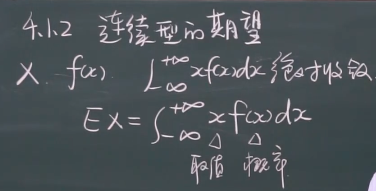 4.1.2 连续型的期望
X f(x) ∫_{-∞}^{+∞} xf(x)dx 绝对收敛
EX = ∫_{-∞}^{+∞} x f(x) dx
△ △
取值 概率